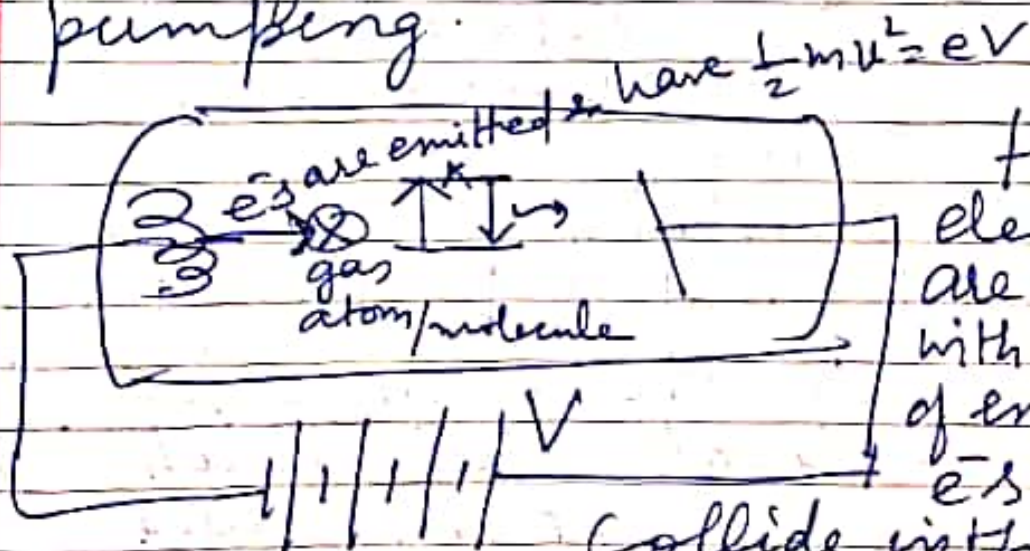 pumping.
e⁻s are emitted & have ½mv² = eV
gas
atom/molecule
V
ele
are
with
of en
e⁻s
Collide with